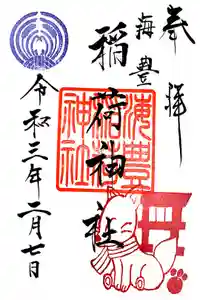 奉拝
海豊
稲荷神社
海豊稲荷神社
令和三年二月七日